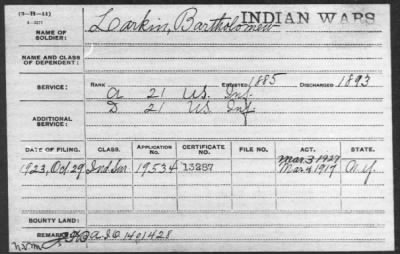 (3-H-12)
INDIAN WARS
NAME OF SOLDIER: Larkin, Bartholomew
NAME AND CLASS OF DEPENDENT:
SERVICE: RANK ENLISTED 1885 DISCHARGED 1893
A 21 U.S. Inf.
D 21 US Inf
ADDITIONAL SERVICE:
DATE OF FILING. CLASS. APPLICATION NO. CERTIFICATE NO. FILE NO. ACT. STATE.
Mar. 3 1927
1923, Oct. 29 Ind. Sur. 19534 13287 Mar. 4 1917 N.Y.
BOUNTY LAND:
REMARKS: 1401428